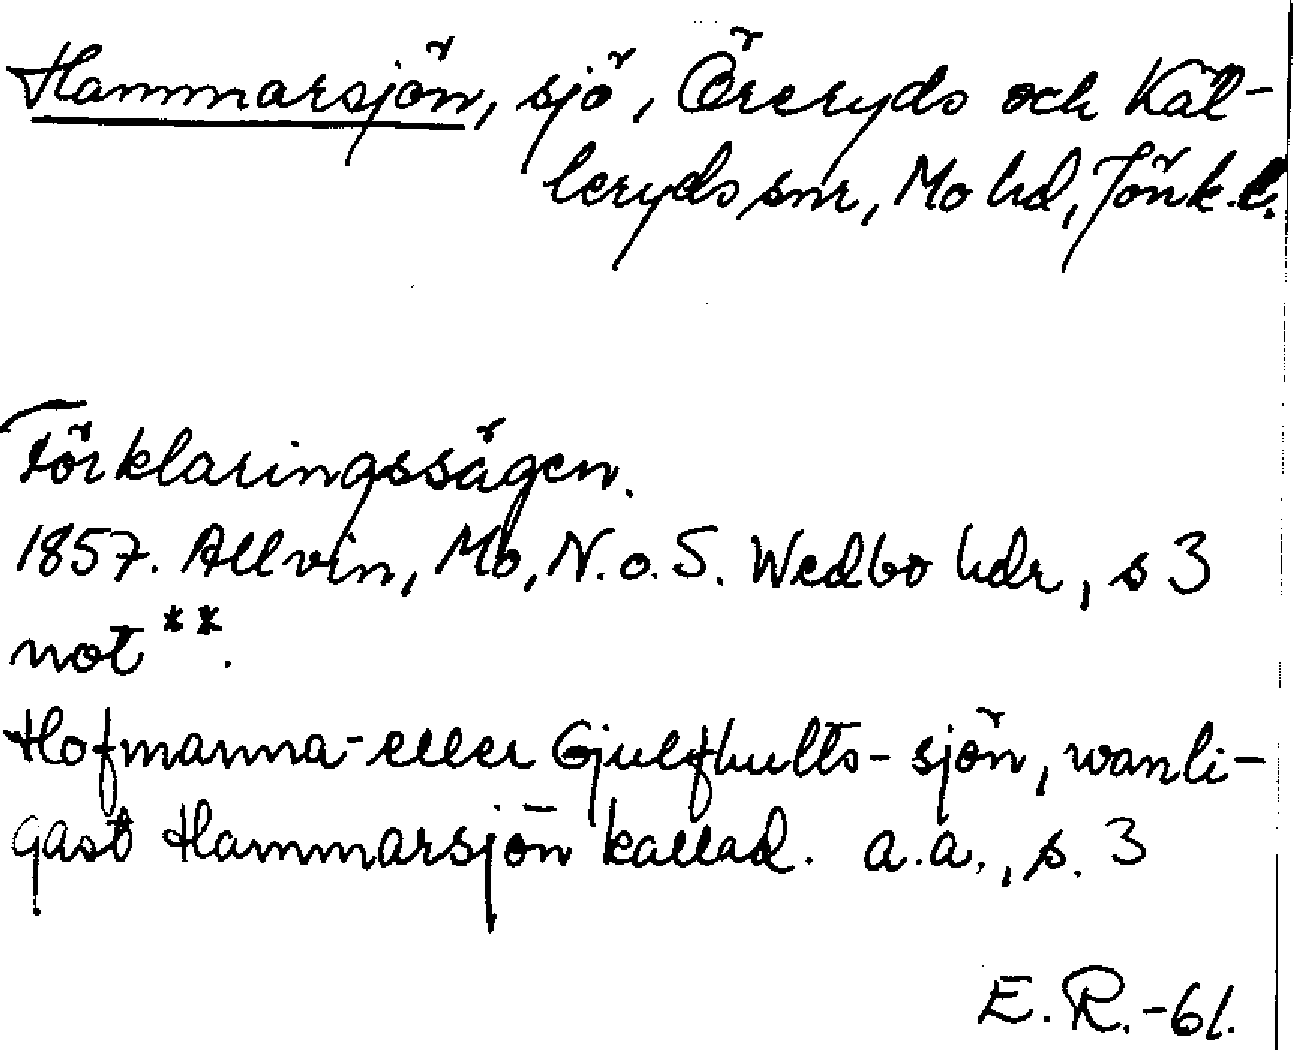 Hammarsjön, sjö, Öreryds och Käl-
leryds snr, Mo hd, Jönk.l.
Förklaringssägen.
1857. Allvin, Mo, N.o.S. Wedbo hdr, s 3
not **.
Hofmanna- eller Gjulfhults-sjön, wanli-
gast Hammarsjön kallad. a.a., s. 3
E.R.-61.